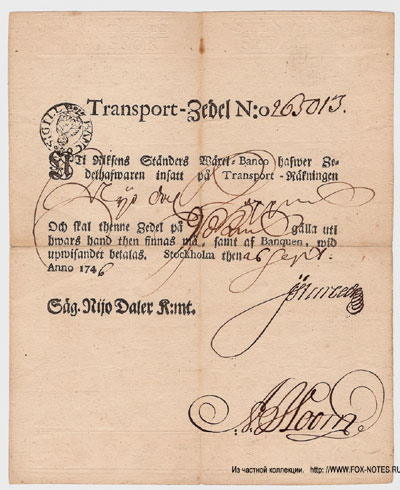 SIGILL BANC
Transport-Zedel N:o 263013.
Uti Riksens Ständers Wäxel-Banco hafwer Ze-
delhafwaren insatt på Transport-Räkningen
Nijo dal
Och skal thenne Zedel på gälla uti
hwars hand then finnas må, samt af Banquen, wid
upwisandet betalas. Stockholm then 26 Sept.
Anno 1746
Säg. Nijo Daler K:mt.
Из частной коллекции. http://www.FOX-NOTES.RU